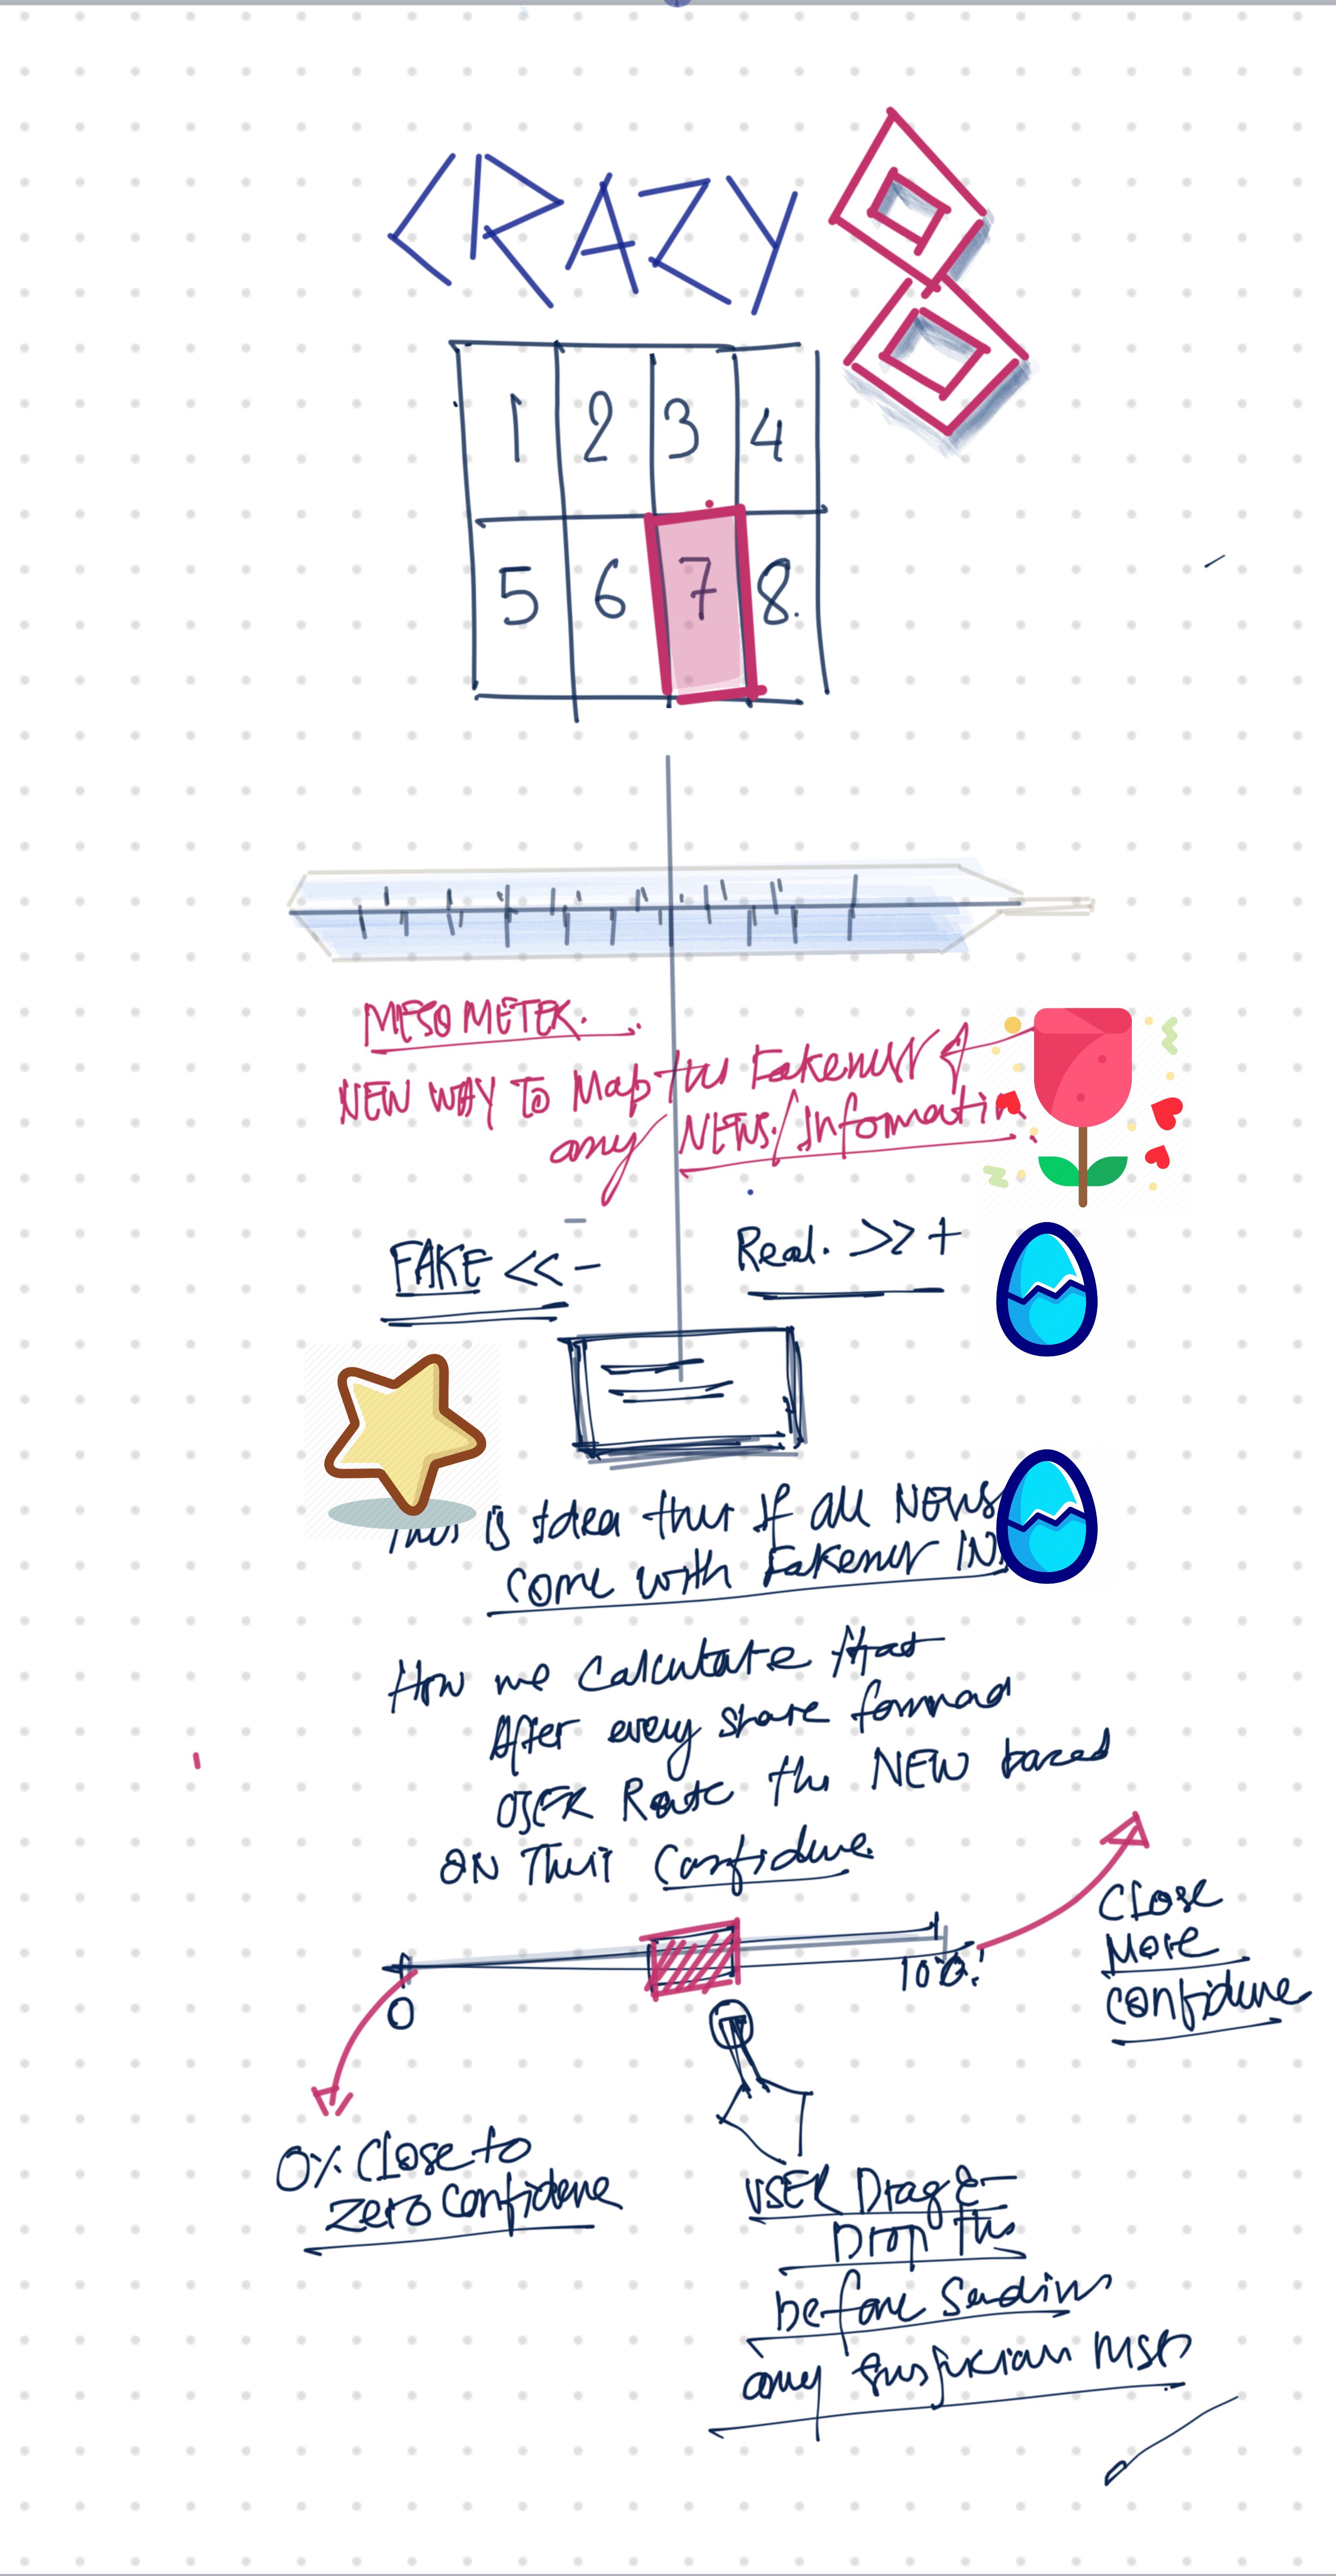 CRAZY 8
1 2 3 4
5 6 7 8
MESO METER.
NEW WAY TO Map the Fakeness
any NEWS/Information.
FAKE << -
Real. >> +
This is Idea that If all NEWS
come with Fakeness IN
How we Calculate that
After every share forward
USER Route the NEW based
ON Their Confidence.
0
100.
Close
More
confidence
0% Close to
zero confidence
USER Drag &
Drop this
before Sending
any MSG